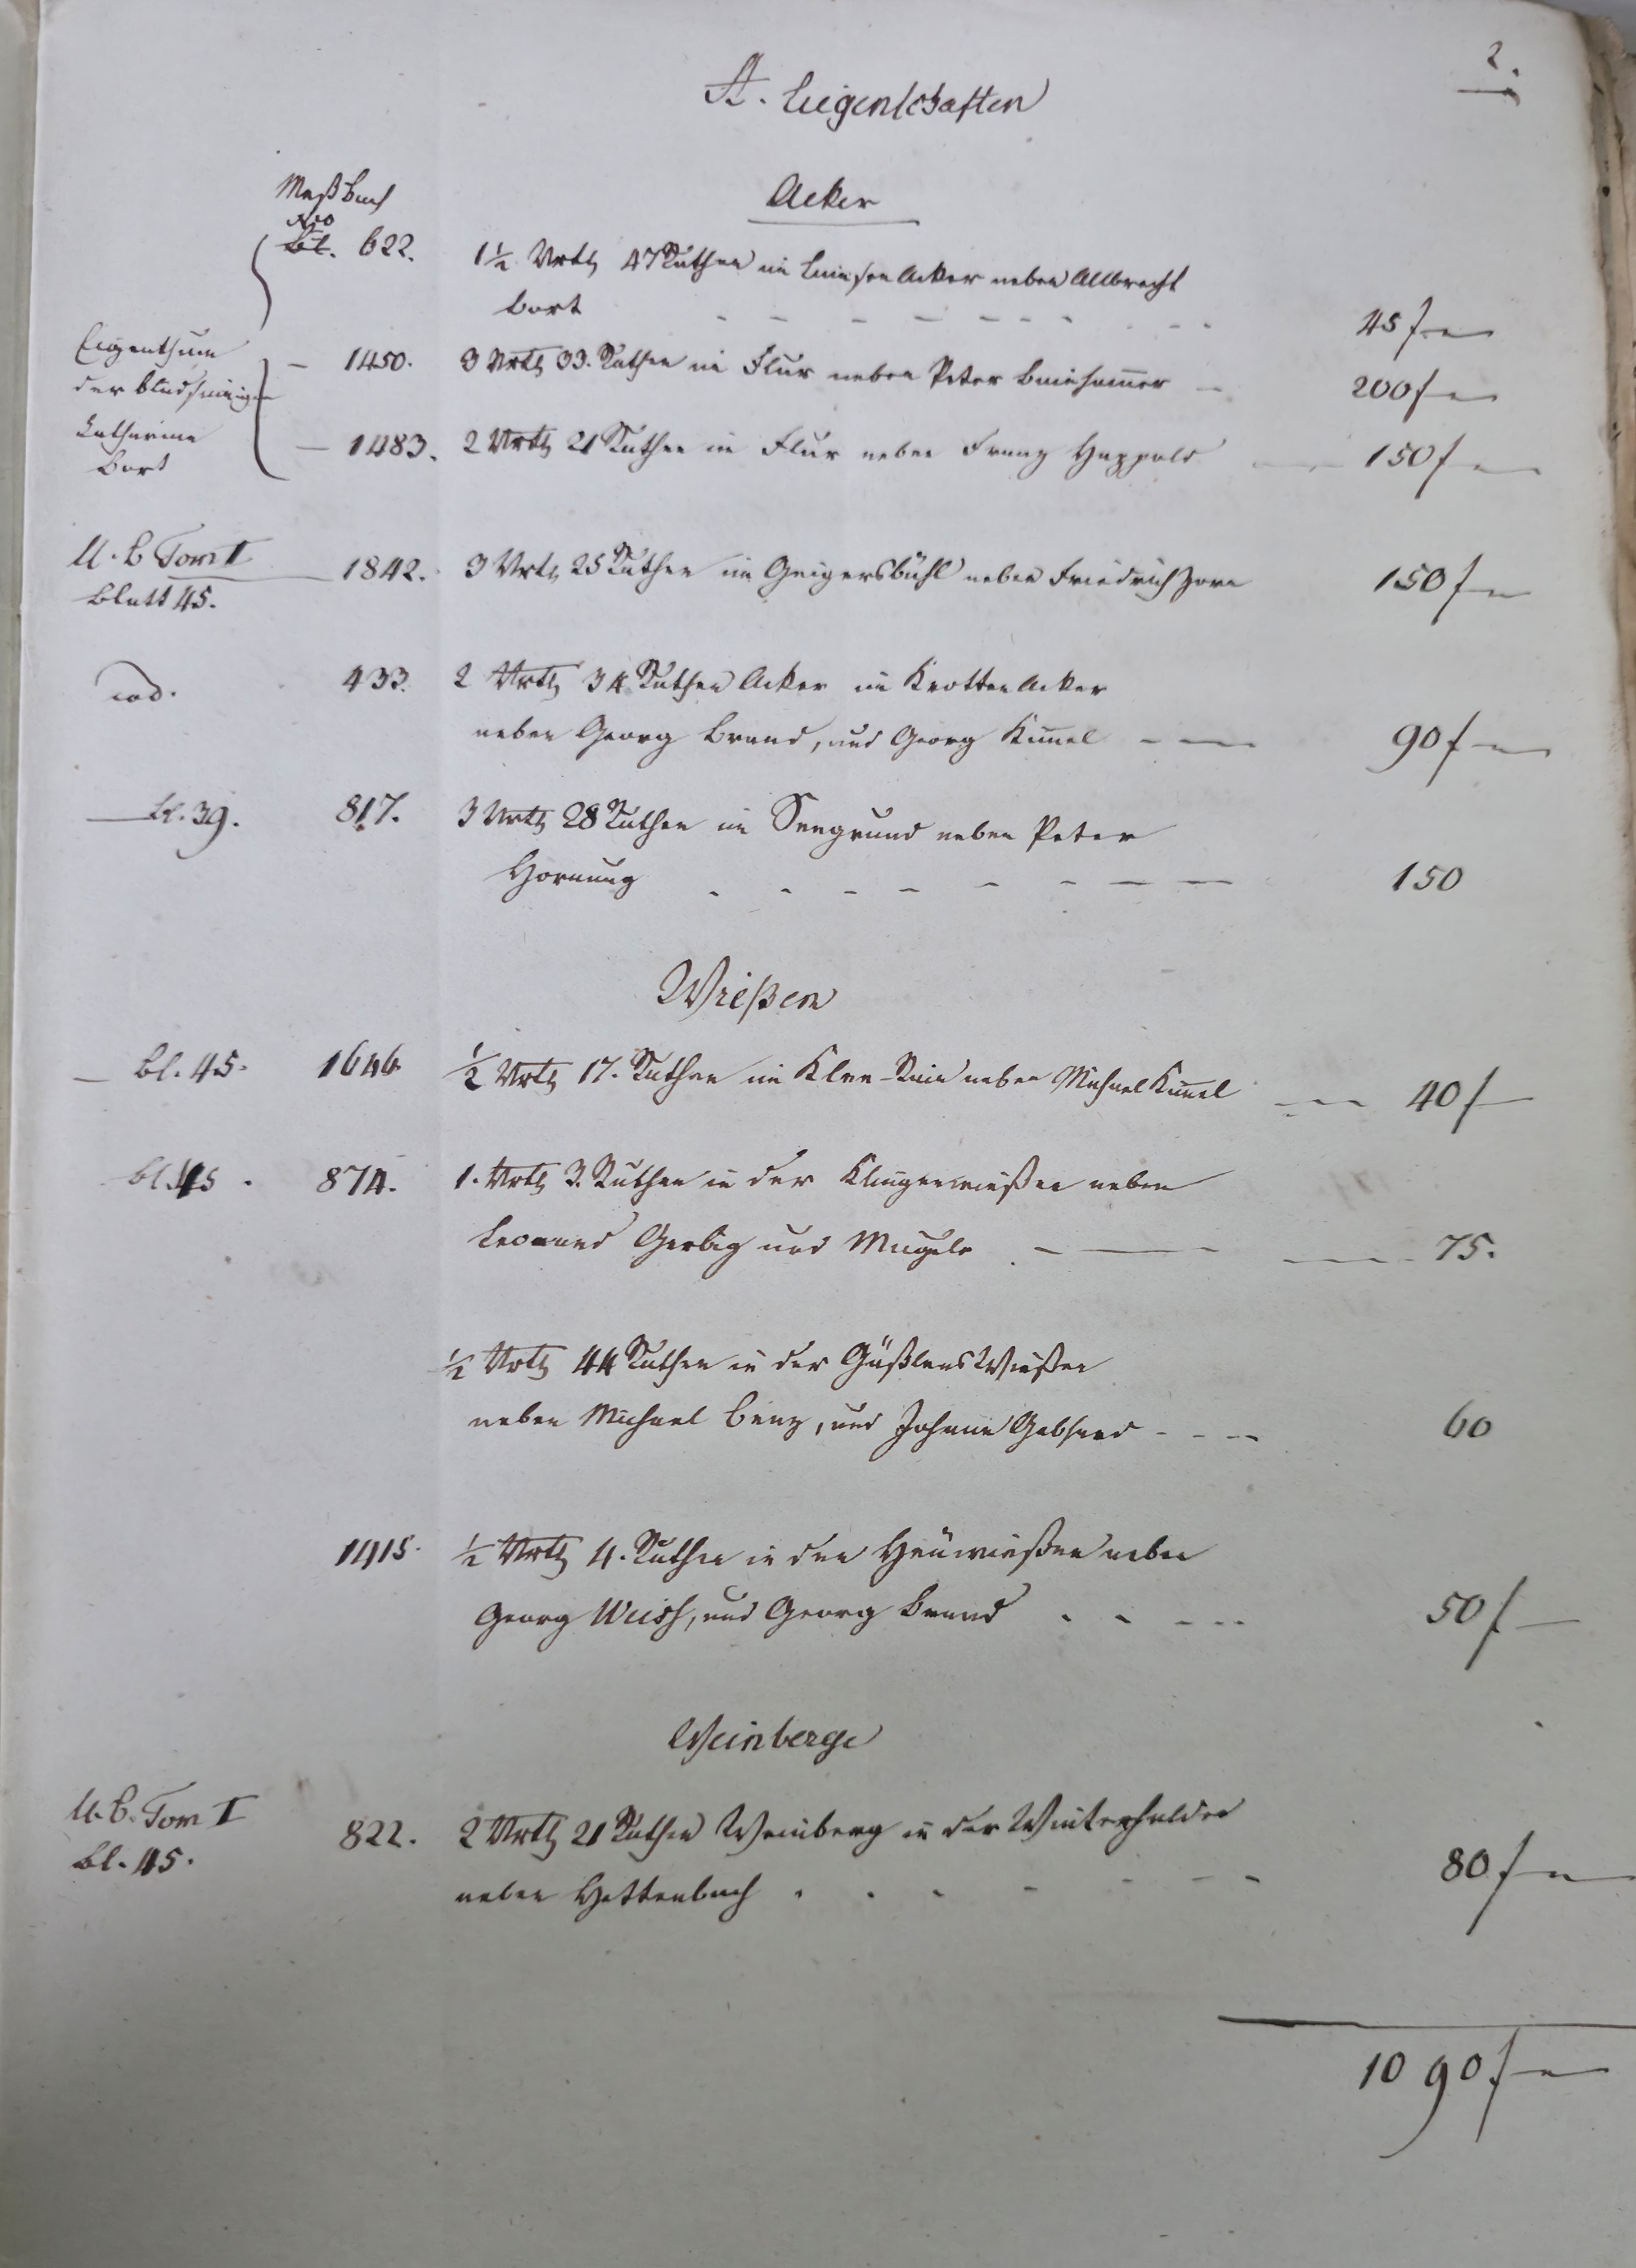 2.
A. Liegenschaften
Meßbuch
Acker
Nro
Bl. 622. 1½ Vrtl 47 Ruthen im Linsenacker neben Albrecht
Bort 45 f
Eigenthum
der blödsinnigen
Katharina
Bort
— 1450. 3 Vrtl 33. Ruthen im Flur neben Peter 200 f
— 1483. 2 Vrtl 21 Ruthen im Flur neben Franz Happold 150 f
U. B Tom I
Blatt 45.
1842. 3 Vrtl 25 Ruthen im Geigersbühl neben Friedrich Zorn 150 f
eod. 433. 2 Vrtl 34 Ruthen Acker im Krottenacker
neben Georg Brand, und Georg Kimel 90 f
— bl. 39. 817. 3 Vrtl 28 Ruthen im Seegrund neben Peter
Hornung 150
Wießen
— bl. 45. 1646 ½ Vrtl 17. Ruthen im Klee-Rain neben Michael Kimel 40 f
bl. 45. 874. 1. Vrtl 3. Ruthen in der Klingenwießen neben
Leonard Gerbig und 75.
½ Vrtl 44 Ruthen in der Gäßlens Wießen
neben Michael Benz, und Johann Gebhard 60
1415. ½ Vrtl 4. Ruthen in den Heuwießen neben
Georg Weiss, und Georg Brand 50 f
Weinberge
U. B. Tom I
bl. 45.
822. 2 Vrtl 21 Ruthen Weinberg in der Winterhalden
neben Hettenbach 80 f
1090 f